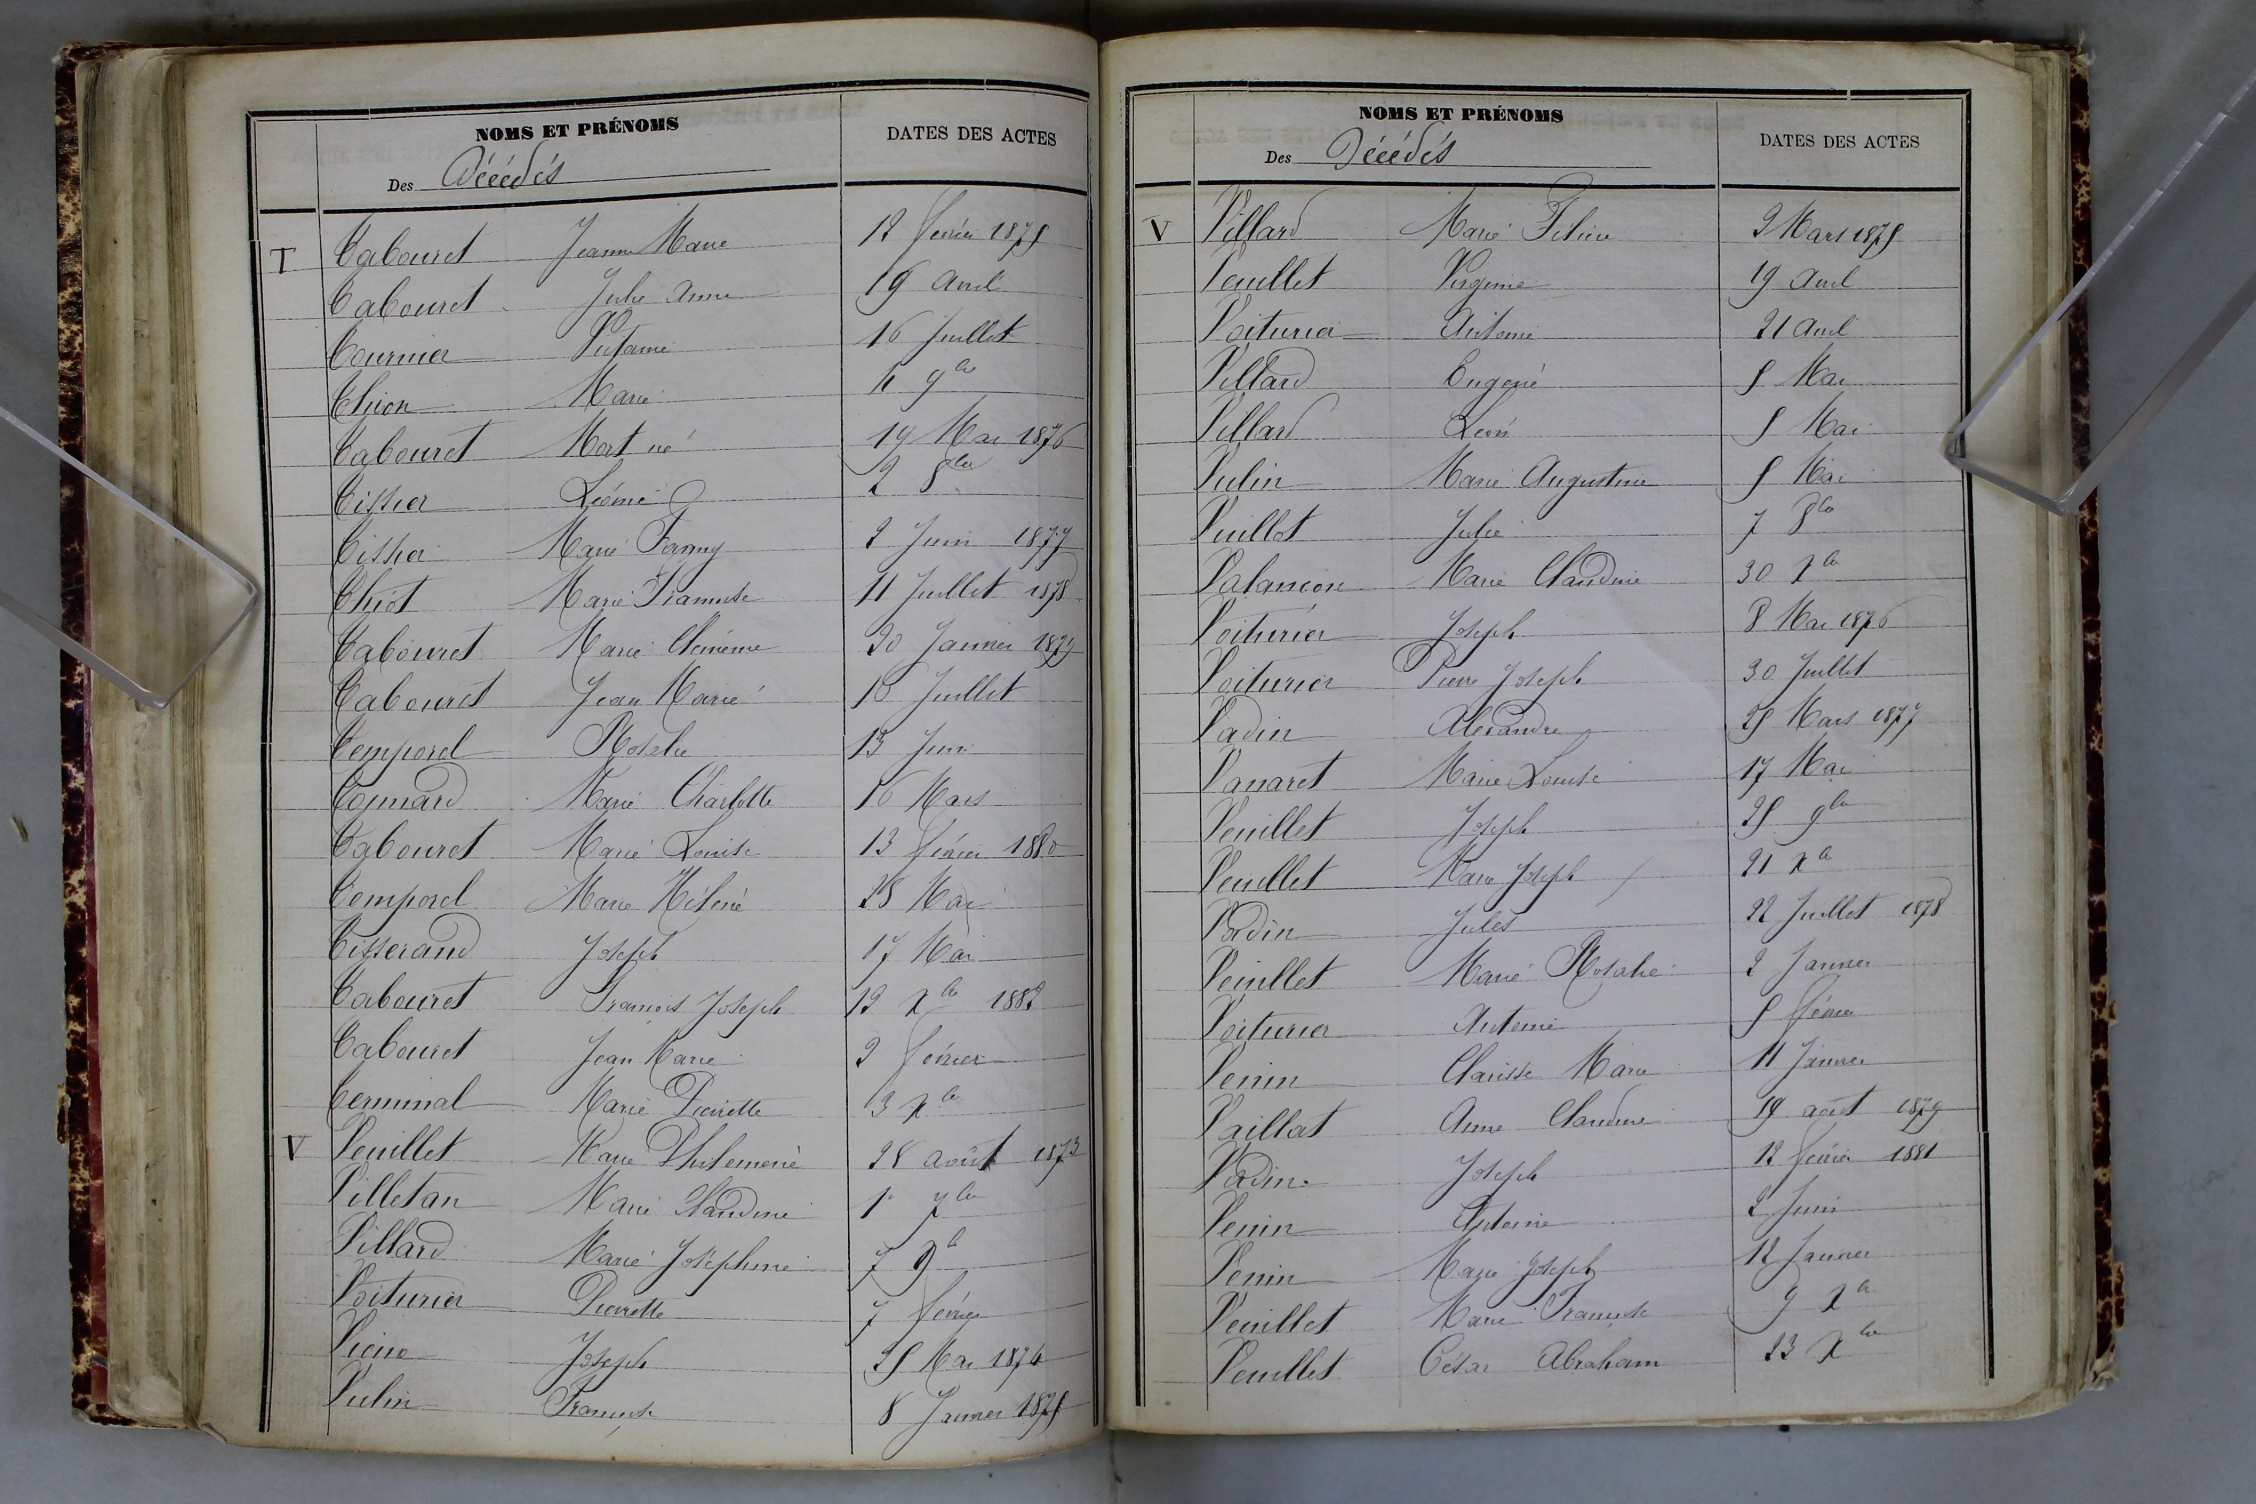 NOMS ET PRÉNOMS DATES DES ACTES
Des Décédés
T Tabouret Jeanne Marie 12 février 1875
Tabouret Julie Anne 19 avril
Tournier 16 Juillet
Thion Marie 4 9bre
Tabouret Mort né 14 Mai 1876
Tissier Léonie 2 8bre
Tissier Marie Fanny 2 Juin 1877
Thiot Marie Françoise 11 Juillet 1878
Tabouret Marie 20 Janvier 1879
Tabouret Jean Marie 10 Juillet
Temporel Rosalie 13 Juin
Marie Charlotte 16 Mars
Tabouret Marie Louise 13 février 1880
Temporel Marie Hélène 28 Mai
Tisserand Joseph 17 Mai
Tabouret François Joseph 12 Xbre 1882
Tabouret Jean Marie 2 février
Terminal Marie Pierrette 3 Xbre
V Veuillet Marie Philomène 28 août 1873
Villetan Marie Claudine 1er 7bre
Villard Marie Joséphine 7 9b
Voiturier Pierrette 7 février
Joseph 25 Mai 1874
Vulin Françoise 8 Janvier 1875
NOMS ET PRÉNOMS DATES DES ACTES
Des Décédés
V Villard Marie 2 Mars 1875
Veuillet Virginie 19 avril
Voiturier Antoine 21 avril
Villard Eugène 5 Mai
Villard Léon 5 Mai
Vulin Marie Augustine 5 Mai
Vuillot Julie 7 8bre
Valancion Marie Claudine 30 Xbre
Voiturier Joseph 8 Mai 1876
Voiturier Pierre Joseph 30 Juillet
Vadin Alexandre 25 Mars 1877
Vanaret Marie Louise 17 Mai
Veuillet Joseph 25 9bre
Veuillet Marie Joseph 21 Xb
Vadin Jules 22 Juillet 1878
Veuillet Marie Rosalie 2 Janvier
Voiturier Antoine 5 février
Venin Clarisse Marie 11 Janvier
Vaillat Anne Claudine 19 août 1879
Vadin Joseph 12 février 1881
Venin Antoine 2 Juin
Venin Marie Joseph 12 Janvier
Veuillet Marie Françoise 9 Xb
Veuillet César Abraham 23 Xbre